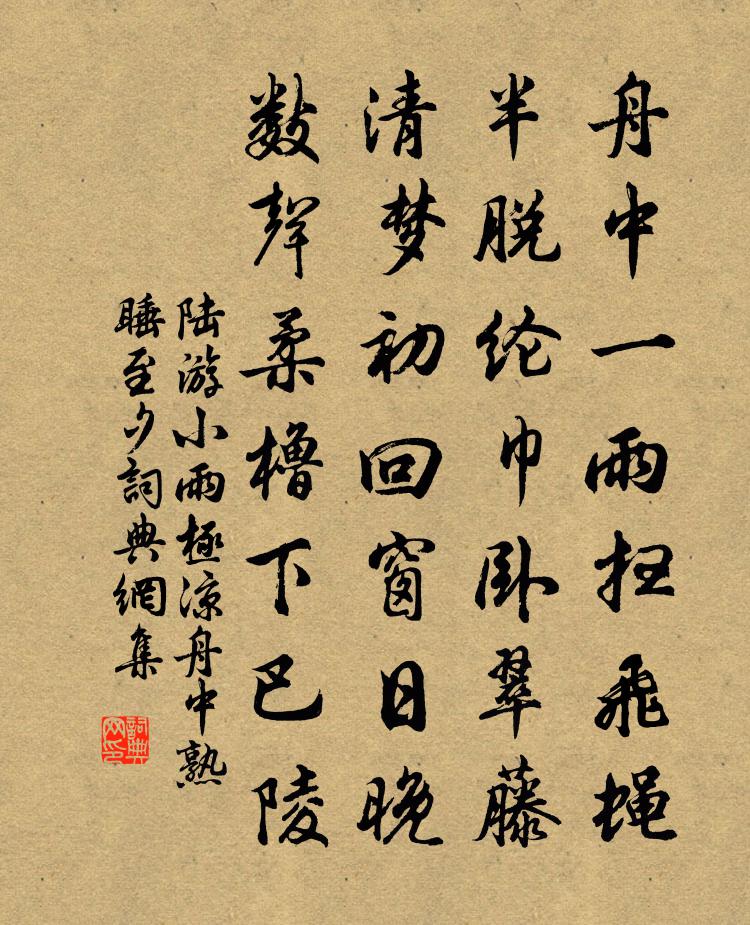 舟中一雨扫飞蝇
半脱纶巾卧翠藤
清梦初回窗日晚
数声柔橹下巴陵
陆游小雨極凉舟中熟
睡至夕詞典網集
詞典网印